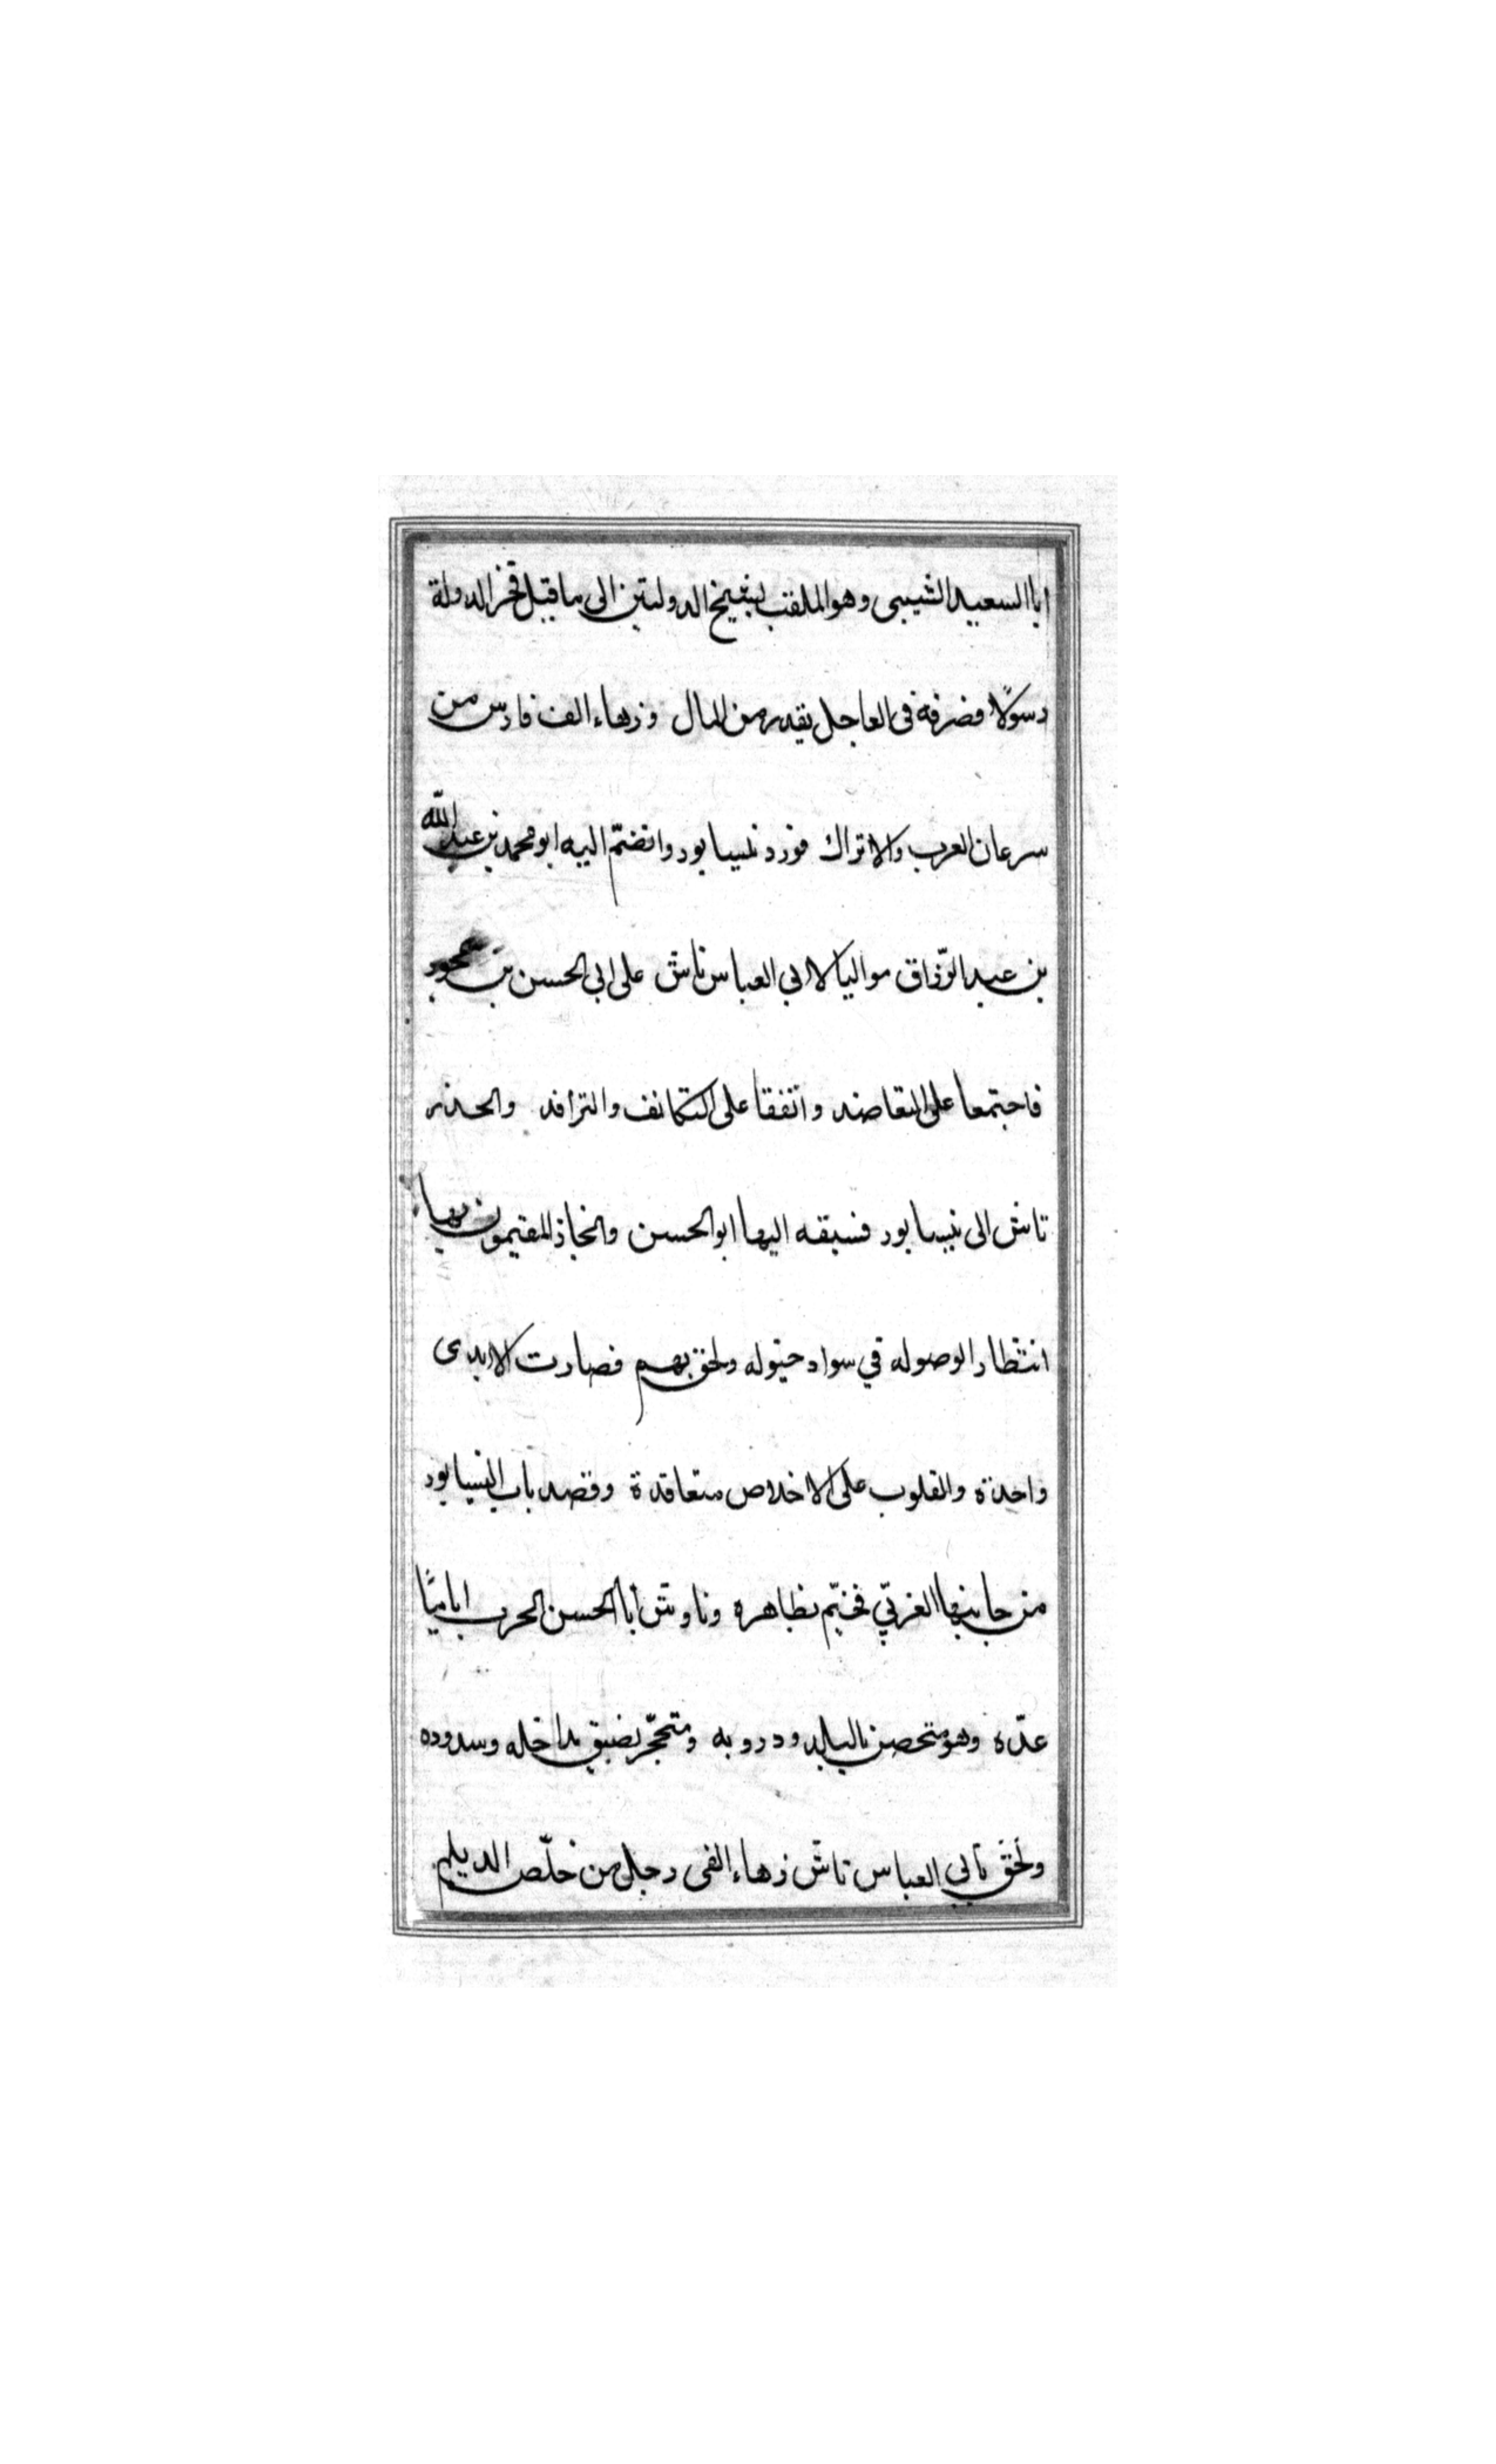 ابا السعيد الشيبى وهو الملقب بشيخ الدولتين الى ما قبل فخر الدولة
رسولًا فصرفه فى العاجل بقدر من المال وزهاء الف فارس من
سرعان العرب والاتراك فورد نيسابور وانضمّ اليه ابو محمد بن عبد الله
بن عبد الرّزاق مواليا لابي العباس تاش على ابي الحسن بن
فاجتمعا على التعاضد واتفقا على التكانف والترافد وانحدر
تاش الى نيسابور فسبقه اليها ابو الحسن وانحاز المقيمون بها
انتظارا لوصوله في سواد خيوله ولحق بهم فصارت الايدى
واحدة والقلوب على الاخلاص متعاقدة وقصد باب النيسابور
من جانبها الغربّي فخيّم بظاهره وناوش أبا الحسن الحرب اياميًا
عدّه وهو متحصن بالبلد ودروبه ومتحجّر بضيق مداخله وسدوده
ولحق بابي العباس تاش زهاء الفى رجل من خلّص الديلم